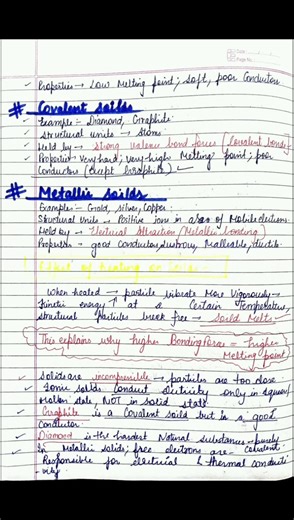 Properties → Low Melting point; Soft, poor Conductors
# Covalent Solids
Example - Diamond, Graphide.
Structural units → Atoms
Held by → strong valence bond forces (Covalent bonds)
Properties → Very hard; very-high Melting point; poor
Conductors (except Graphite)
# Metallic Solids
Examples - Gold, silver, Copper.
Structural Units → Positive ions in a sea of Mobile electrons
Held by → Electrical Attraction (Metallic bonding)
Properties → good Conductors, lustrous, Malleable, ductile.
Effect of heating on
When heated → particle vibrate More Vigorously →
Kinetic energy ↑ at a Certain Temperature,
structural particles break free → Solid Melts.
This explains why higher Bonding force = higher
Melting point
Solids are incompressible → particles are too close
Some solids conduct electricity only in
Molten state, NOT in solid state.
Graphite is a Covalent Solid but is a good
Conductor.
Diamond is the hardest Natural substances - purely
Covalent.
In Metallic solids; free electrons are
Responsible for electrical & thermal conducti
vity